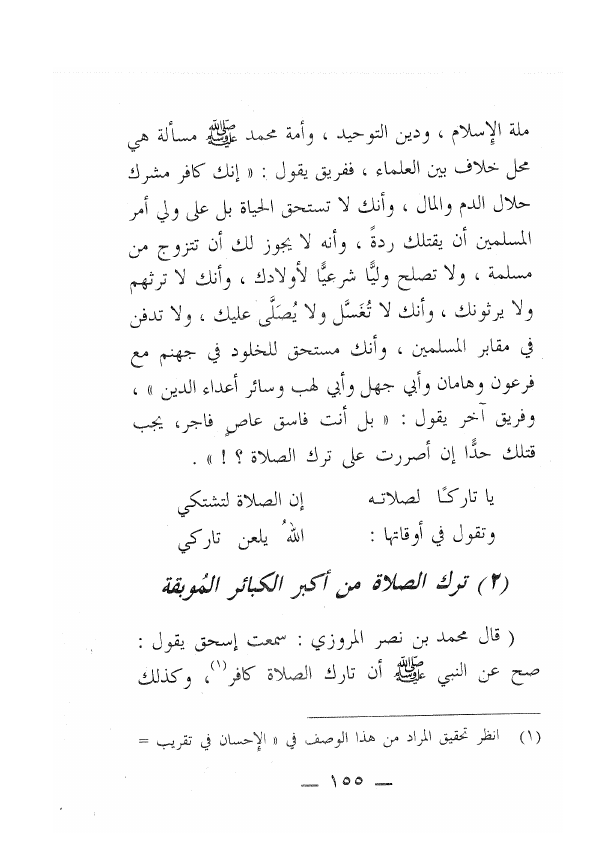 ملة الإسلام ، ودين التوحيد ، وأمة محمد ﷺ مسألة هي
محل خلاف بين العلماء ، ففريق يقول : « إنك كافر مشرك
حلال الدم والمال ، وأنك لا تستحق الحياة بل على ولي أمر
المسلمين أن يقتلك ردةً ، وأنه لا يجوز لك أن تتزوج من
مسلمة ، ولا تصلح وليًّا شرعيًّا لأولادك ، وأنك لا ترثهم
ولا يرثونك ، وأنك لا تُغَسَّل ولا يُصَلَّى عليك ، ولا تدفن
في مقابر المسلمين ، وأنك مستحق للخلود في جهنم مع
فرعون وهامان وأبي جهل وأبي لهب وسائر أعداء الدين » ،
وفريق آخر يقول : « بل أنت فاسق عاصٍ فاجر، يجب
قتلك حدًّا إن أصررت على ترك الصلاة ؟ ! » .
يا تاركًا لصلاته إن الصلاة لتشتكي
وتقول في أوقاتها : اللهُ يلعن تاركي
(٢) ترك الصلاة من أكبر الكبائر المُوبقة
( قال محمد بن نصر المروزي : سمعت إسحق يقول :
صح عن النبي ﷺ أن تارك الصلاة كافر(١)، وكذلك
(١) انظر تحقيق المراد من هذا الوصف في « الإحسان في تقريب =
— ١٥٥ —